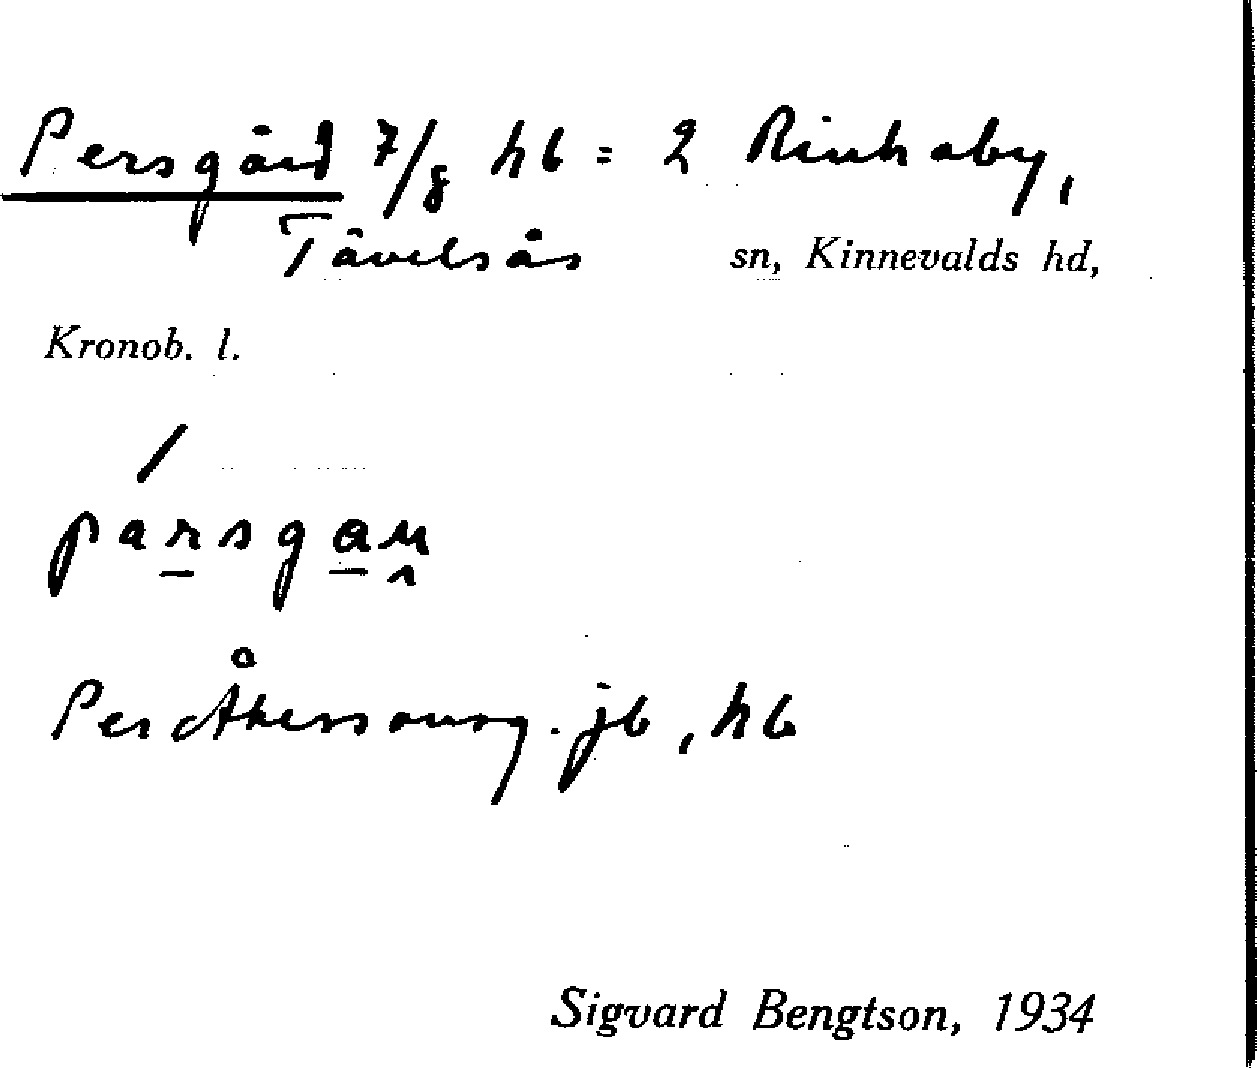 Persgård 7/8 hb = 2 Rinkaby,
Tävelsås sn, Kinnevalds hd,
Kronob. l.
/
parsgan
Per Åkessonsg. jb, hb
Sigvard Bengtson, 1934